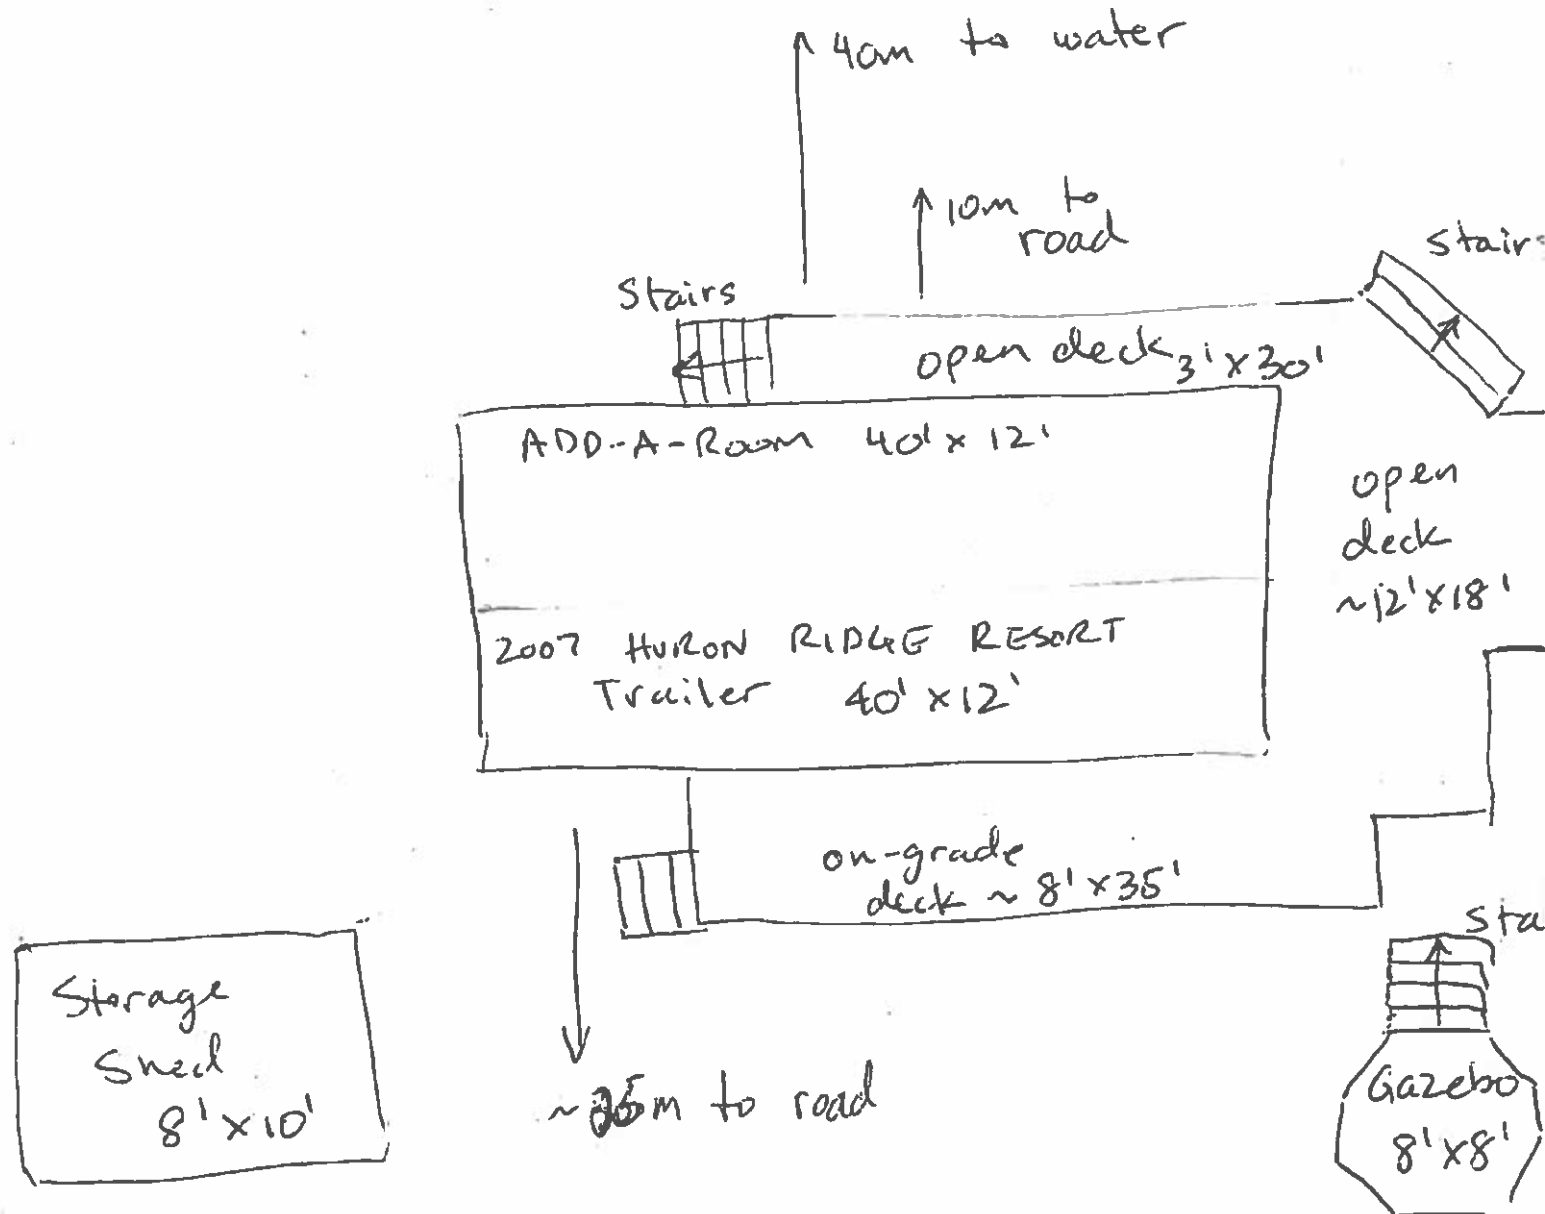 40m to water
10m to
road
Stairs
stairs
open deck 3' x 30'
ADD-A-ROOM 40' x 12'
open
deck
~12' x 18'
2007 HURON RIDGE RESORT
Trailer 40' x 12'
on-grade
deck ~ 8' x 35'
Sta
Storage
Shed
8' x 10'
~ m to road
Gazebo
8' x 8'